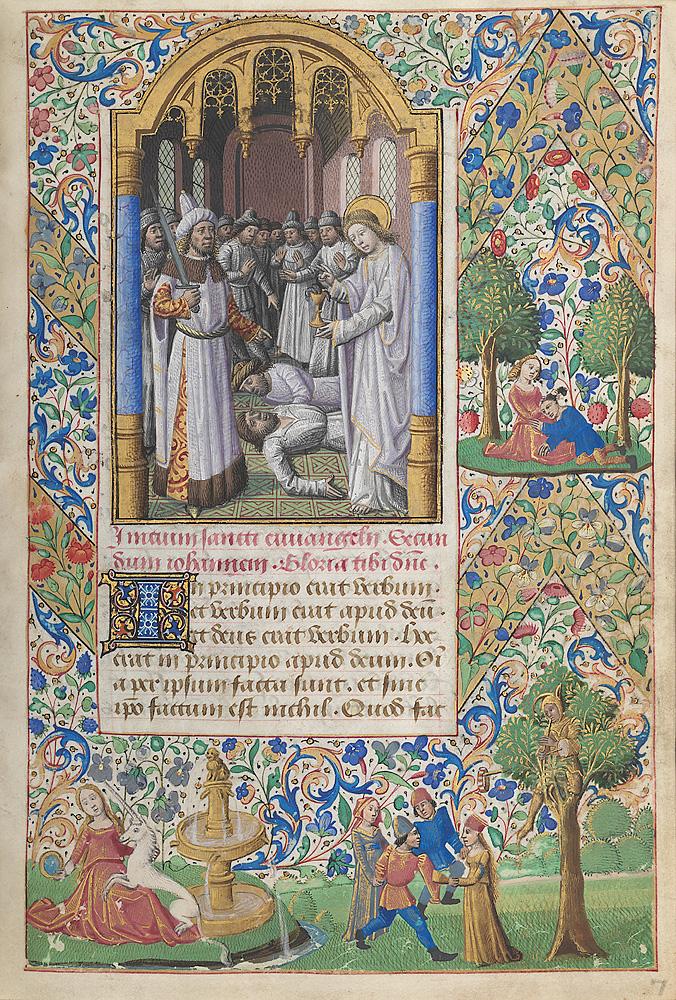 Inicium sancti euuangelii. Secun
dum iohannem. Gloria tibi dn̄e.
In principio erat verbum.
et verbum erat apud deū.
et deus erat verbum. Hoc
erat in principio apud deum. Oī
a per ipsum facta sunt. et sine
ipo factum est nichil. Quod fac
7